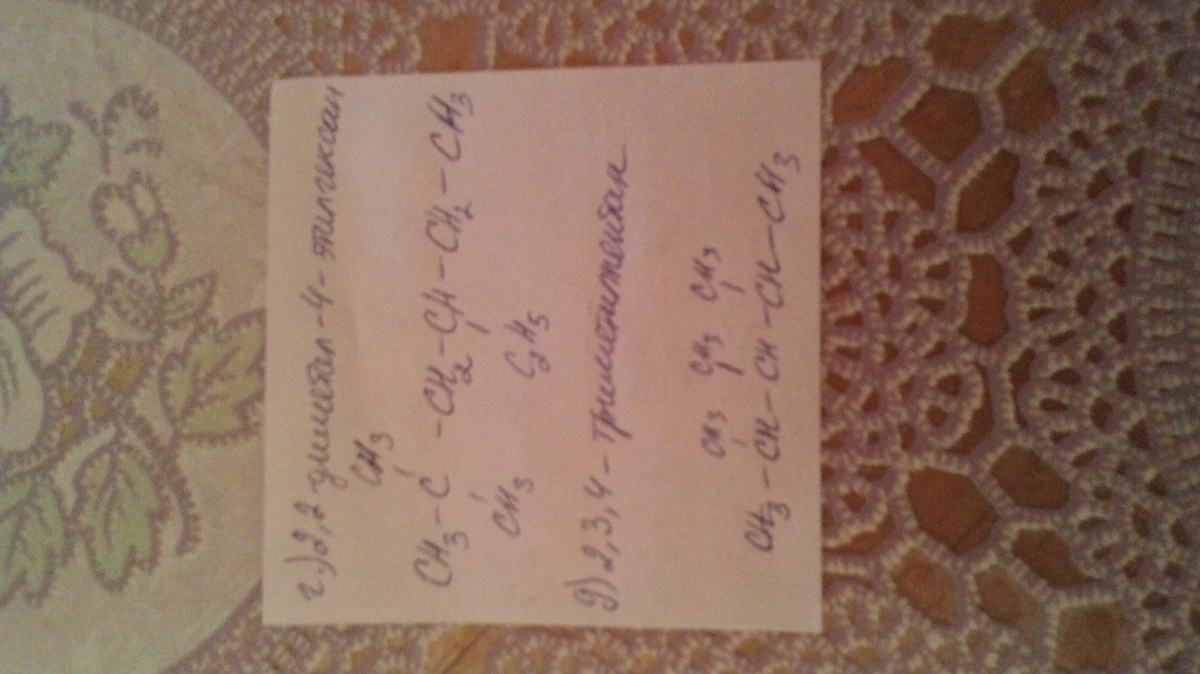 г.) 2,2 диметил-4-этилгиксан
CH3
CH3-C-CH2-CH-CH2-CH3
CH3 C2H5
д) 2,3,4-триметилпентан
CH3 CH3 CH3
CH3-CH-CH-CH-CH3